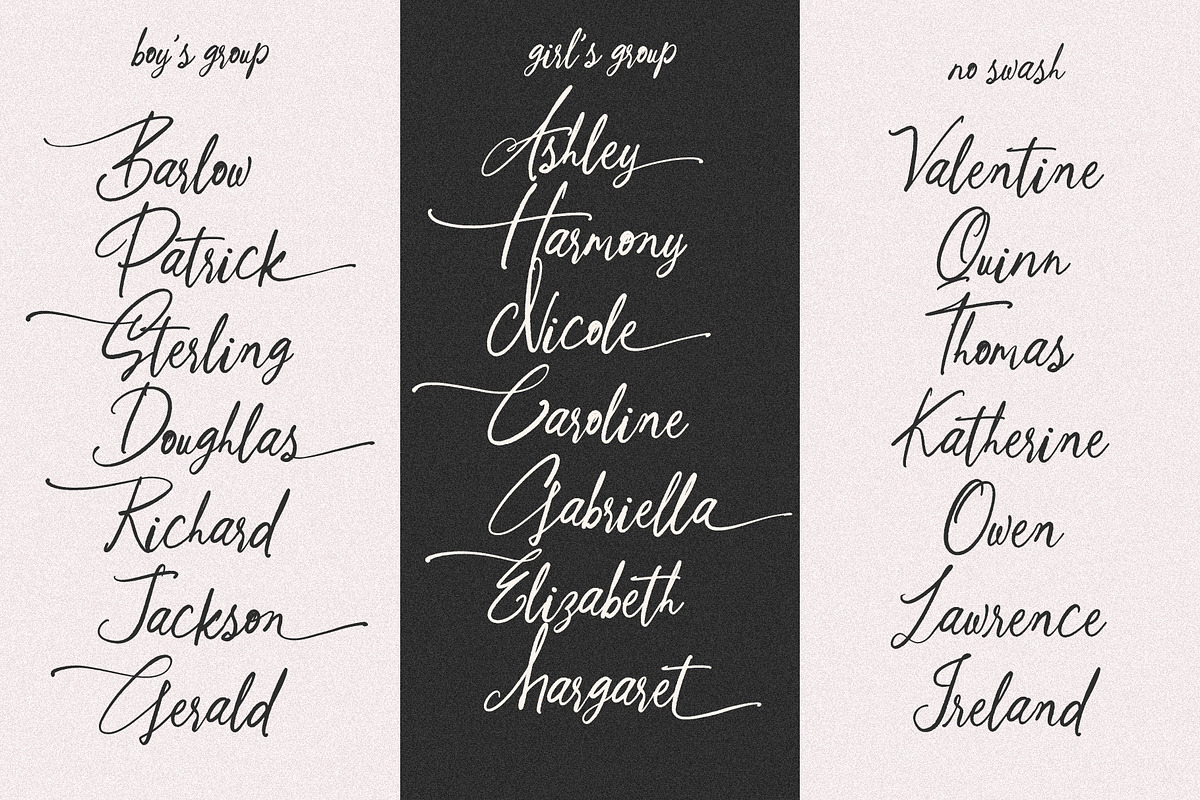 boy's group
Barlow
Patrick
Sterling
Doughlas
Richard
Jackson
Gerald
girl's group
Ashley
Harmony
Nicole
Caroline
Gabriella
Elizabeth
Margaret
no swash
Valentine
Quinn
Thomas
Katherine
Owen
Lawrence
Ireland